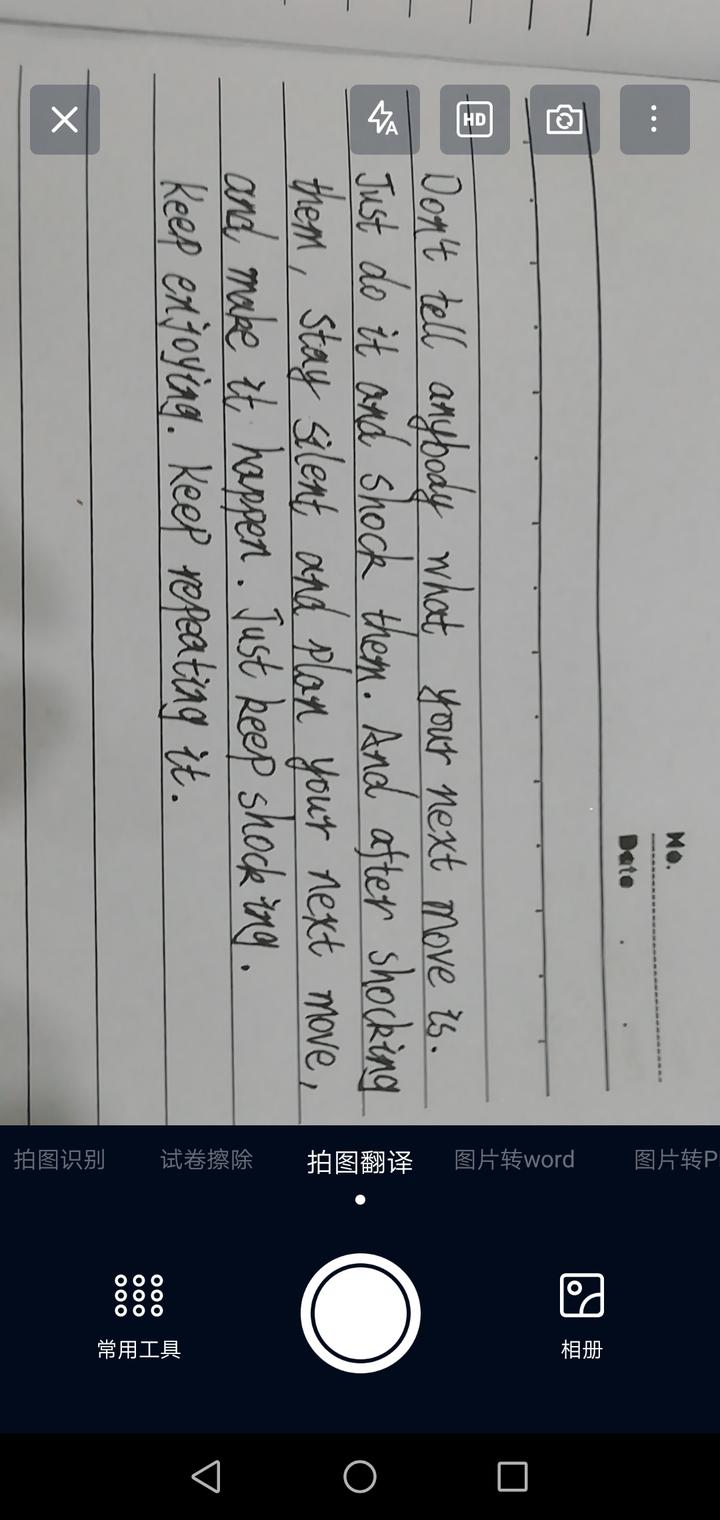 HD
No.
Date
Don't tell anybody what your next move is.
Just do it and shock them. And after shocking
them, stay silent and plan your next move,
and make it happen. Just keep shocking.
Keep enjoying. Keep repeating it.
拍图识别 试卷擦除 拍图翻译 图片转word 图片转P
常用工具 相册